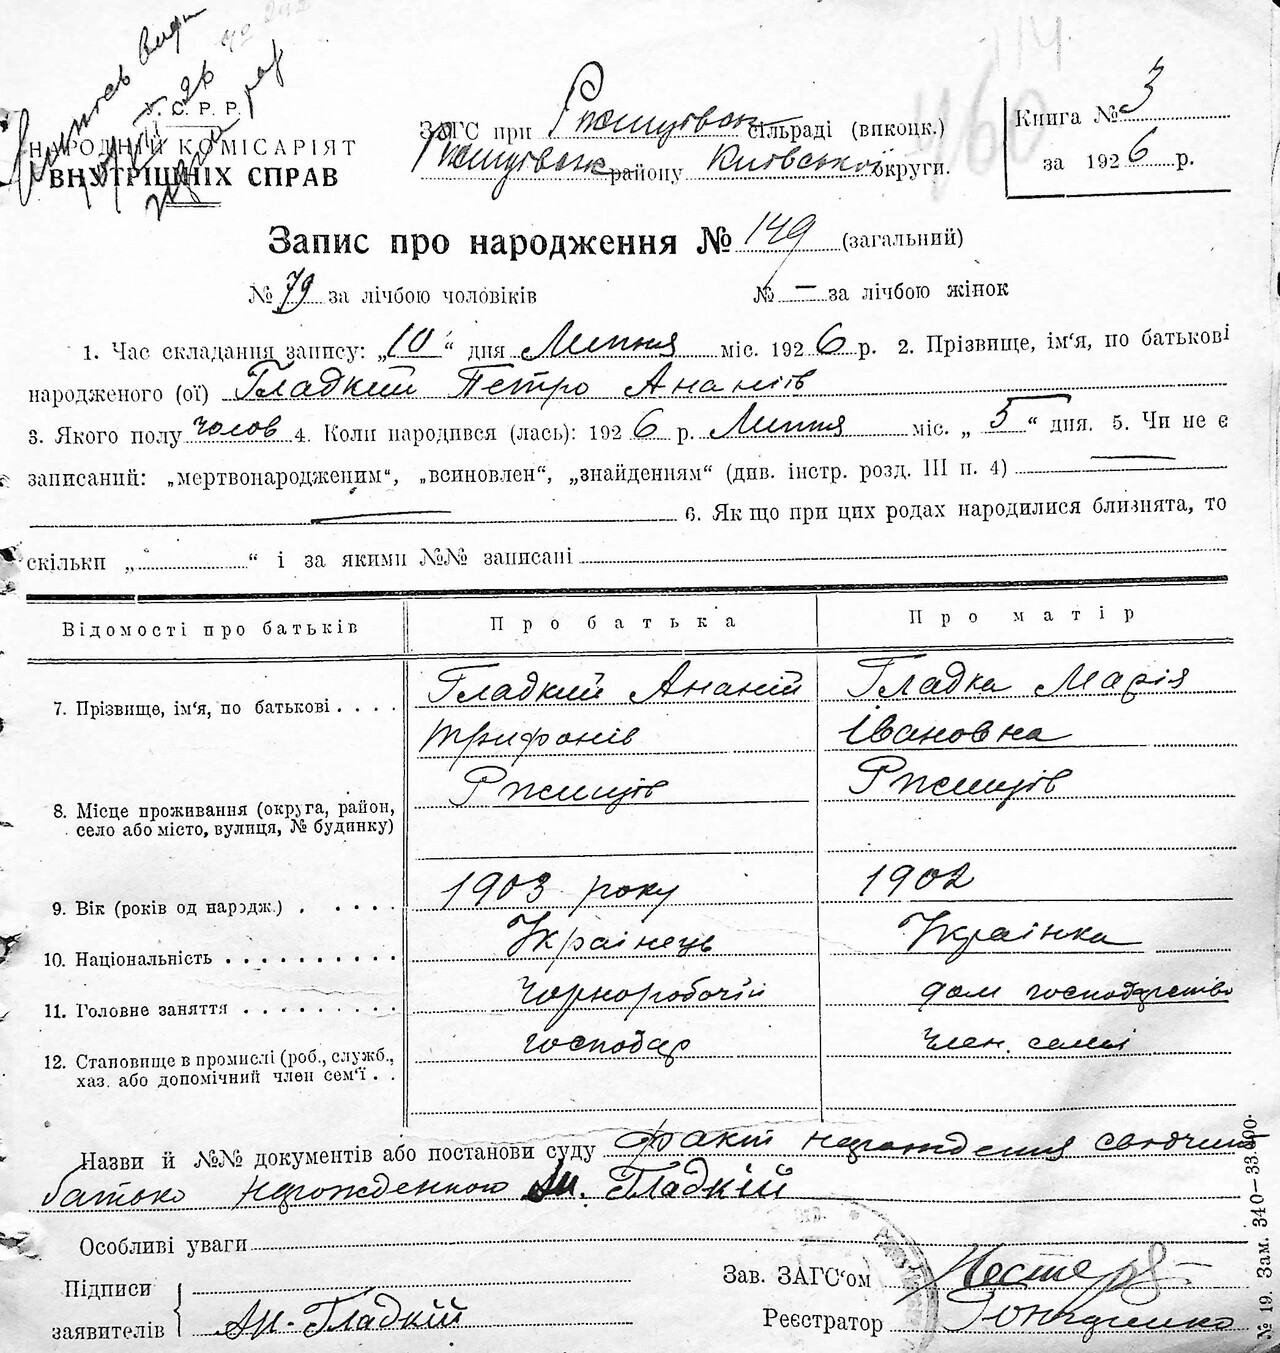 У. С. Р. Р.
НАРОДНІЙ КОМІСАРІЯТ
ВНУТРІШНІХ СПРАВ
ЗАГС при Ржищівськ сільраді (викоцк.)
Ржищівськ району Київської округи.
Книга № 3
за 1926 р.
Запис про народження № 149 (загальний)
№ 79 за лічбою чоловіків № — за лічбою жінок
1. Час складання запису: „10“ дня Липня міс. 1926 р. 2. Прізвище, ім‘я, по батькові
народженого (ої) Гладкий Петро Ананіїв
3. Якого полу чолов 4. Коли народився (лась): 1926 р. Липня міс. „5“ дня. 5. Чи не є
записаний: „мертвонародженим“, „всиновлен“, „знайденням“ (див. інстр. розд. III п. 4) —
— 6. Як що при цих родах народилися близнята, то
скільки „ “ і за якими №№ записані
Відомості про батьків Про батька Про матір
7. Прізвище, ім‘я, по батькові Гладкий Ананій Гладка Марія
Трифонів Івановна
8. Місце проживання (округа, район, Ржищів Ржищів
село або місто, вулиця, № будинку)
9. Вік (років од народж.) 1903 року 1902
10. Національність Українець Українка
11. Головне заняття чорноробочій дом господарство
12. Становище в промислі (роб., служб., господар член. семі
хаз. або допомічний член сем‘ї
Назви й №№ документів або постанови суду факт нарождения свідчит
батько нарожденного Ан. Гладкій
Особливі уваги
Підписи
заявителів Ан. Гладкій
Зав. ЗАГС‘ом
Реєстратор
№ 19. Зам. 340—33.000.